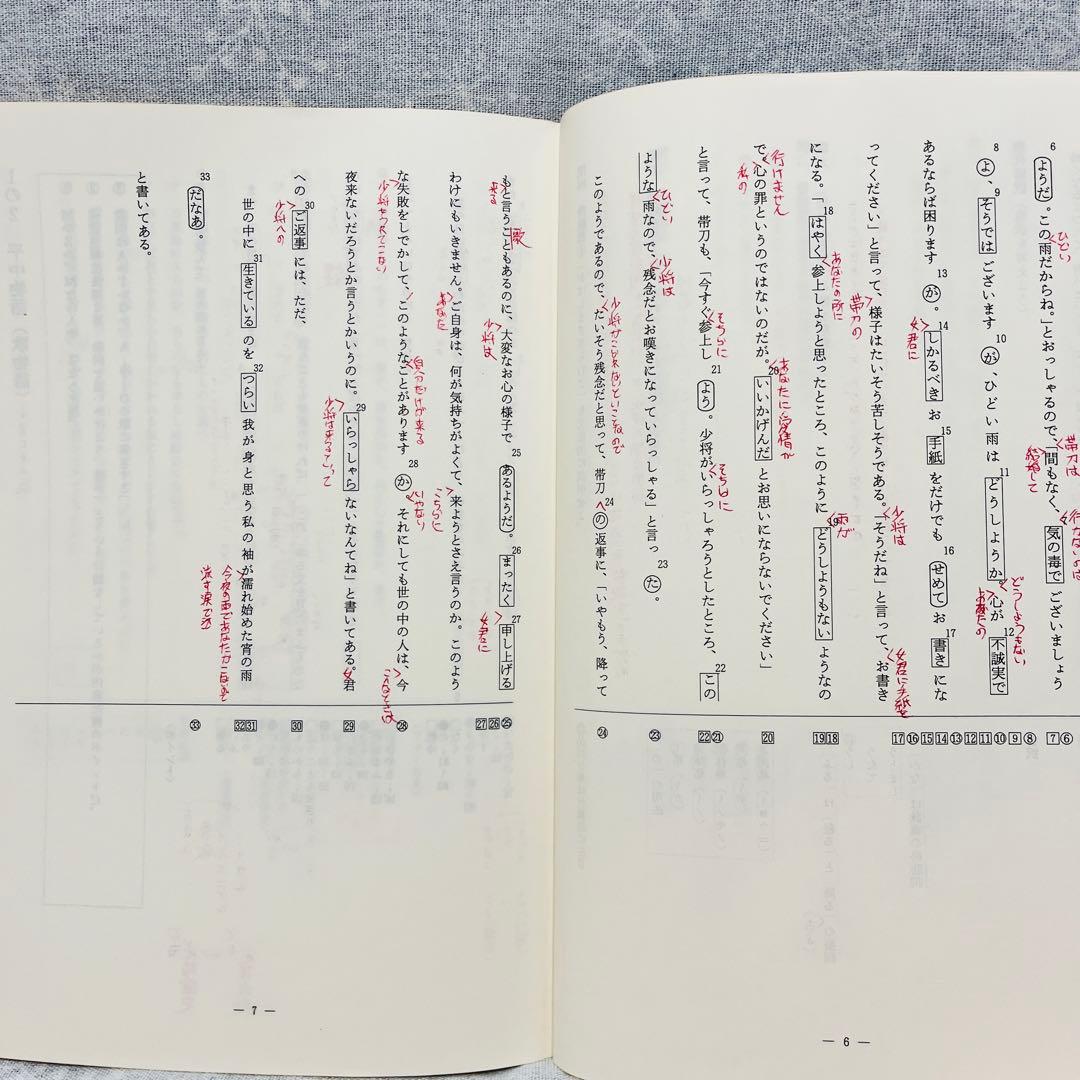 6
ようだ。この雨だからね。」とおっしゃるので、「間もなく、気の毒でございましょう
ひどい
帯刀は
結婚して
行かないのは
8 9 10 11 12
よ、そうではございますが、ひどい雨はどうしようか。心が不誠実で
どうしようもない
あなたの
13 14 15 16 17
あるならば困りますが。しかるべきお手紙をだけでもせめてお書きにな
女君に
ってください」と言って、様子はたいそう苦しそうである。「そうだね」と言って、お書き
帯刀の
少将は
女君に手紙を
18 19
になる。「はやく参上しようと思ったところ、このようにどうしようもないようなの
あなたの所に
雨が
20
で。心の罪というのではないのだが。いいかげんだとお思いにならないでください」
行けません
私の
あなたに愛情が
21 22
と言って、帯刀も、「今すぐ参上しよう。少将がいらっしゃろうとしたところ、この
そちらに
そちらに
23
ような雨なので、残念だとお嘆きになっていらっしゃる」と言った。
ひどい
少将は
24
このようであるので、たいそう残念だと思って、帯刀への返事に、「いやもう、降って
少将がこられないということなので
⑥ 7 ⑧ 9 ⑩ 11 12 ⑬ 14 15 16 17
18 19
20
㉑ 22
㉓
㉔
— 6 —
25 26 27
もと言うこともあるのに、大変なお心の様子であるようだ。まったく申し上げる
来る
歌
少将は
女君に
わけにもいきません。ご自身は、何が気持ちがよくて、来ようとさえ言うのか。このよう
あなた
こちらに
28
な失敗をしでかして、このようなことがありますか。それにしても世の中の人は、今
少将をつれてこない
自分だけが来る
いやない
29
夜来ないだろうとか言うとかいうのに。いらっしゃらないなんてね」と書いてある。君
少将は来るといって
女
30
へのご返事には、ただ、
少将への
31 32
世の中に生きているのをつらい我が身と思う私の袖が濡れ始めた宵の雨
今夜の雨であなたがこないので
流す涙で
33
だなあ。
と書いてある。
㉕ 26 27
㉘
29
30
31 32
㉝
— 7 —